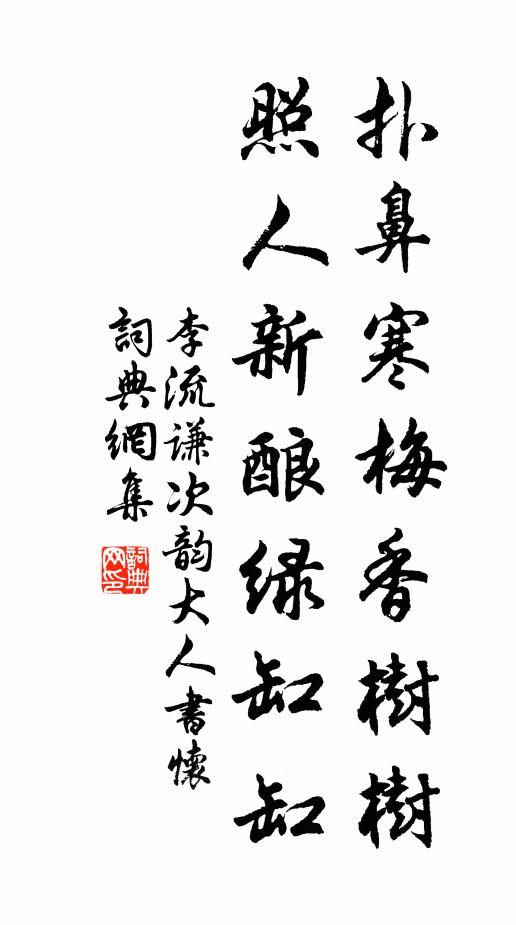 扑鼻寒梅香樹樹
照人新酿绿缸缸
李流谦次韵大人書懷
詞典網集
詞典网印